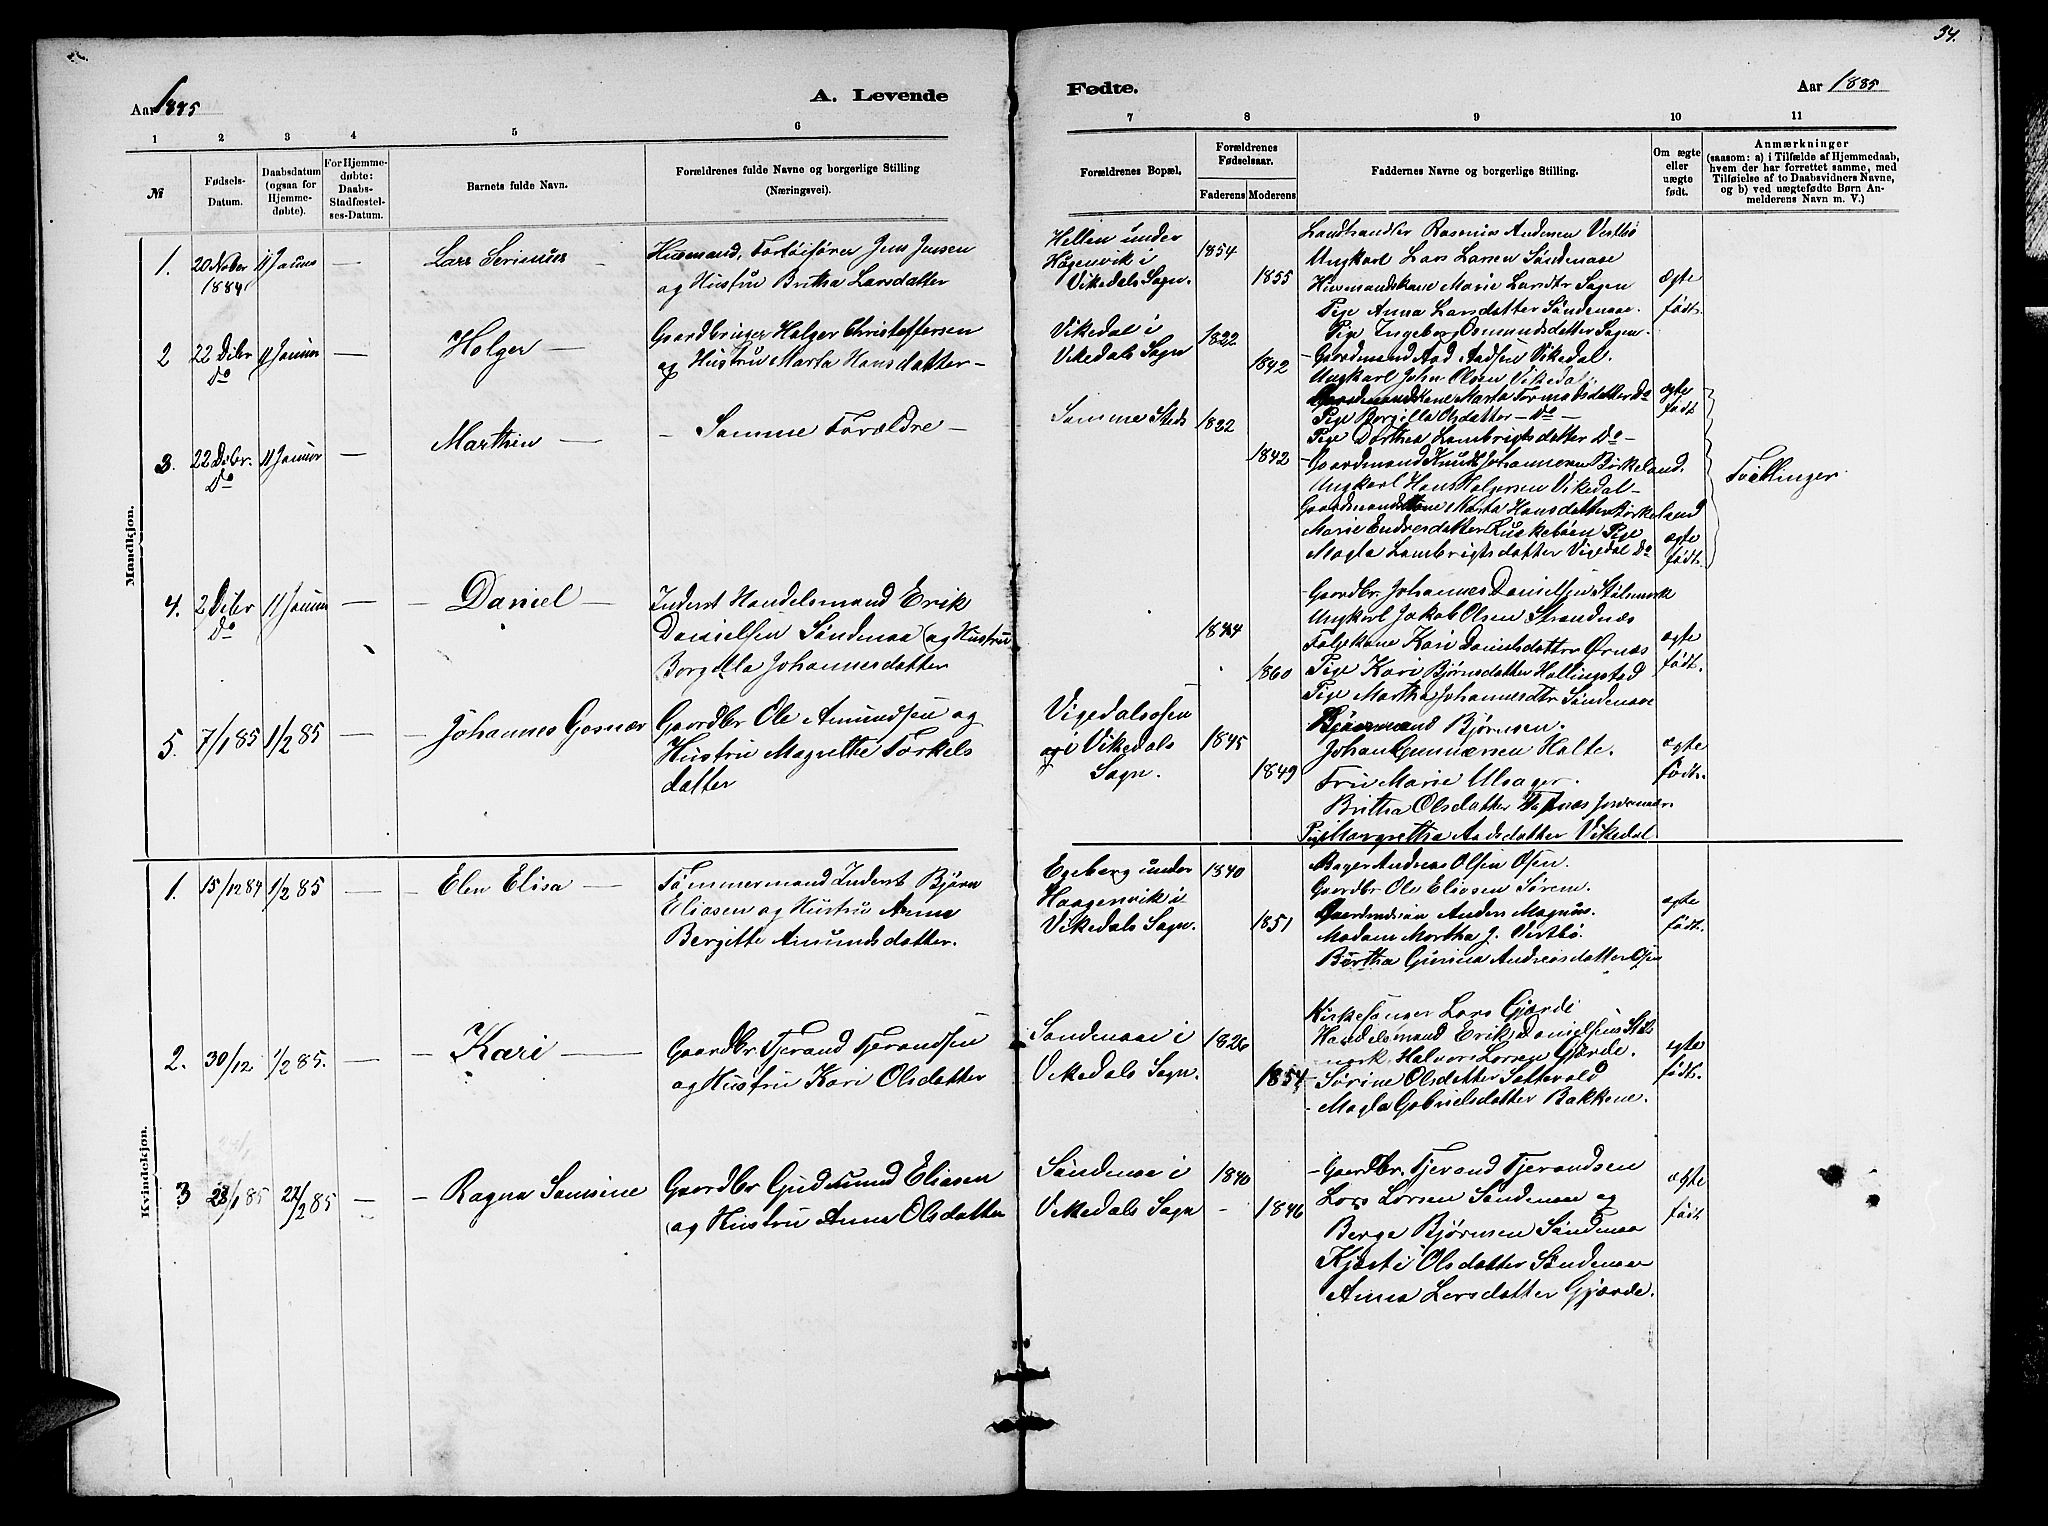 34.
Aar 1885
A. Levende
Fødte.
Aar 1885
1 2 3 4 5 6 7 8 9 10 11
№
Fødsels-
Datum.
Daabsdatum
(ogsaa for
Hjemme-
døbte):
For Hjemme-
døbte:
Daabs-
Stadfæstel-
ses-Datum.
Barnets fulde Navn.
Forældrenes fulde Navne og borgerlige Stilling
(Næringsvei).
Forældrenes Bopæl.
Forældrenes
Fødselsaar.
Faderens Moderens
Faddernes Navne og borgerlige Stilling.
Om ægte
eller
uægte
født.
Anmærkninger
(saasom: a) i Tilfælde af Hjemmedaab,
hvem der har forrettet samme, med
Tilføielse af to Daabsvidners Navne,
og b) ved uægtefødte Børn An-
melderens Navn m. V.)
Mandkjøn.
1.
20 Nober
1884
11 Januar
—
Lars Serinius
Husmand, Jens Jensen
og Hustru Britha Larsdatter
Hellen under
Høgenvik i
Vikedals Sogn.
1854
1855
Landhandler Rasmus Andersen Vestbø
Ungkarl Lars Larsen Søndenaae
Husmandskone Marie Larsdtr Sagen
Pige Anna Larsdatter Søndenaae.
Pige Ingeborg Osmundsdatter Sagen.
ægte
født.
2
22 Dcbr
Do
11 Januar
—
Holger —
Gaardbruger Holger Christoffersen
og Hustru Marta Hansdatter —
Vikedal i
Vikedals Sogn
1822
1842
Gaardmand Aad Aadsen Vikedal.
Ungkarl John Olsen Vikedal.
Gaardmandskone Marta Tormodsdatter Do
Pige Borgilla Olsdatter — Do —
Pige Dorthea Lambrigtsdatter Do —
ægte
født
3.
22 Dcbr.
Do
11 Januar
—
Marthin —
— Samme Forældre —
Samme Sted
1822
1842
Gaardmand Knut Johannesen Børkeland.
Ungkarl Hans Holgersen Vikedal —
Gaardmandskone Marta Hansdatter Børkeland
Marie Endresdatter Ruskebøen Pige
Magla Lambrigtsdatter Vigedal Do
ægte
født.
Tvillinger
4.
2 Dcbr
Do
11 Januar
—
— Daniel —
Inderst Handelsmand Erik
Danielsen Søndenaa (og Hustru
Borgilla Johannesdatter
1844
1860
Gaardbr Johannes Danielsen Stølemork
Ungkarl Jakob Olsen Strandnæs
Kari Danielsdatter Ørnæs
Pige Kari Bjørnsdatter Hollingstad
Pige Martha Johannesdtr Søndenaae
ægte
født.
5.
7/1 85
1/2 85
—
— Johannes Gosnær
Gaardbr Ole Amundsen og
Hustru Magrethe Torkels
datter
Vigedalsosen
i Vikedals
Sogn.
1845
1849
Bjørnsen.
Johan Gunnersen Halte.
Fru Marie Ulsager.
Britha Olsdatter
Pige Margretha Aadsdatter Vikedal
ægte
født.
Kvindekjøn.
1.
15/12 84
1/2 85
—
— Elen Elisa —
Tømmermand Inderst Bjørn
Eliasen og Hustru Anna
Bergitte Amundsdatter.
Egeberg under
Haagenvik i
Vikedals Sogn.
1840
1851
Bager Andreas Olsen Osen.
Gaardbr Ole Eliasen Sørem.
Anders Magnus.
Madam Martha J. Vestbø.
Bertha Gurina Andreasdatter Osen
ægte
født.
2.
30/12
1/2 85.
—
— Kari —
Gaardbr Tjerand Tjerandsen
og Hustru Kari Olsdatter
Søndenaae i
Vikedals Sogn.
1826
1854
Kirkesanger Lars Gjærde
Handelsmand Erik Danielsen Støle
mork. Halvor Larsen Gjærde.
Sørine Olsdatter
Magla Gabrielsdatter Bakkene.
ægte
født.
3
28/1 85
22/2 85
—
— Ragna Samsine
Gaardbr Gudmund Eliasen
(og Hustru Anna Olsdatter
Søndenaae i
Vikedals Sogn
1840
1846
— Gaardbr. Tjerand Tjerandsen
Lars Larsen Søndenaae og
Berge Bjørnsen Søndenaa
Kjersti Olsdatter Søndenaae
Anna Larsdatter Gjærde.
ægte
født